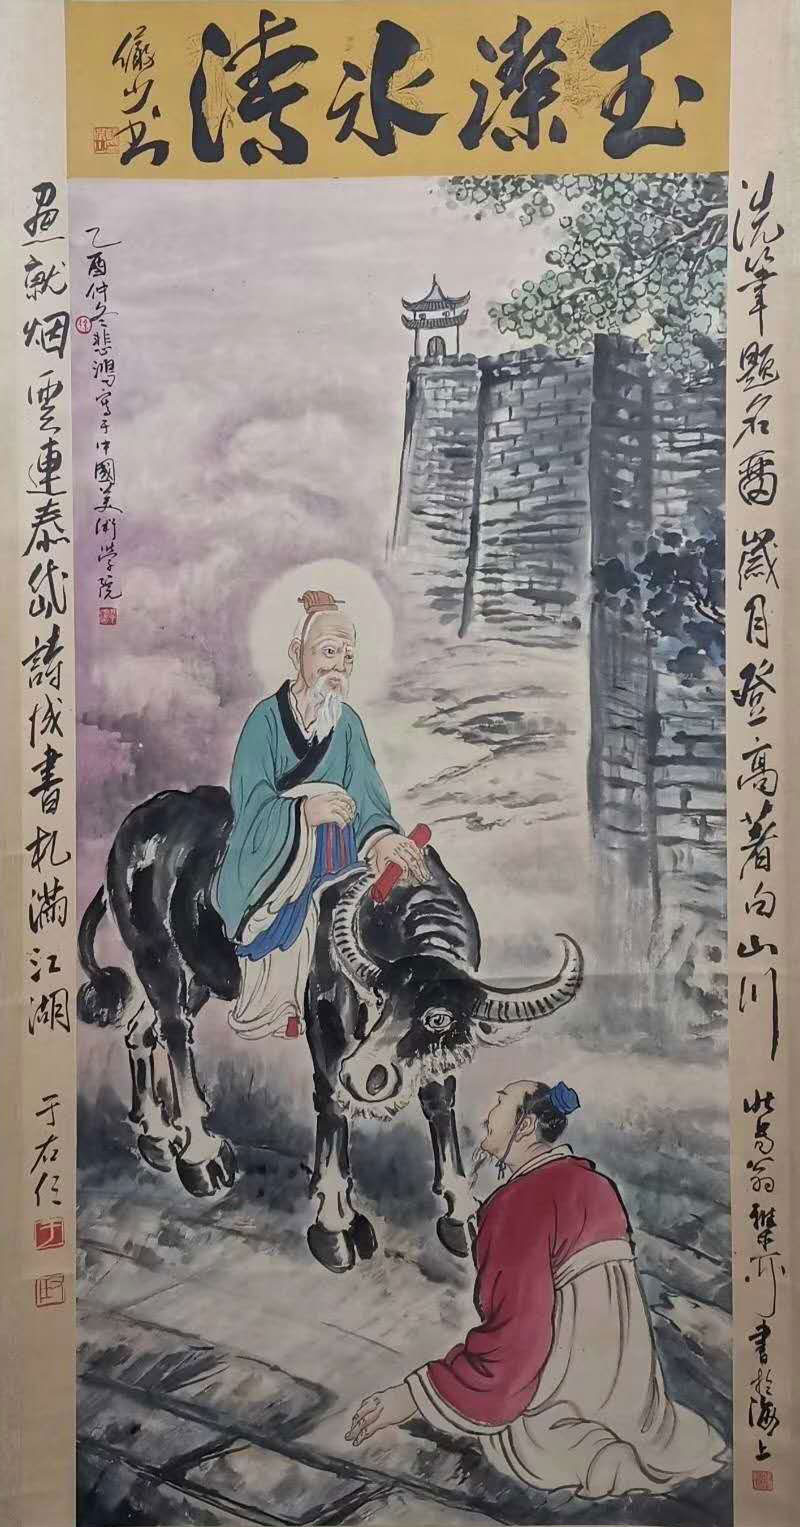 玉潔冰清
儼少书
洗筆題名留歲月登高著山川
書於海上
乙酉仲冬悲鴻寫于中國美術學院
畫就烟雲連泰岱詩成書札滿江湖
于右任